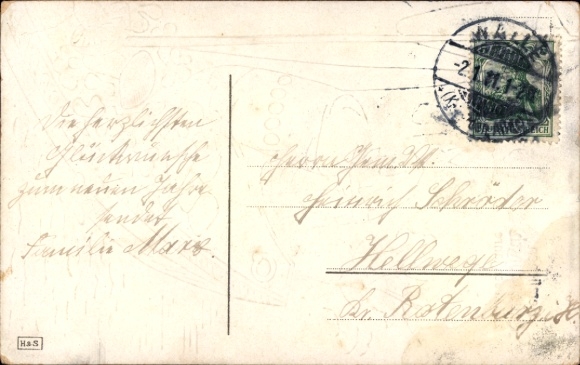 Die herzlichsten
Glückwünsche
zum neuen Jahre
sendet
Familie Marx.
Herrn
Heinrich Schröder
Hellwege
Kr. Rotenburg
-2.1.11.1-2
REICH
H.&S